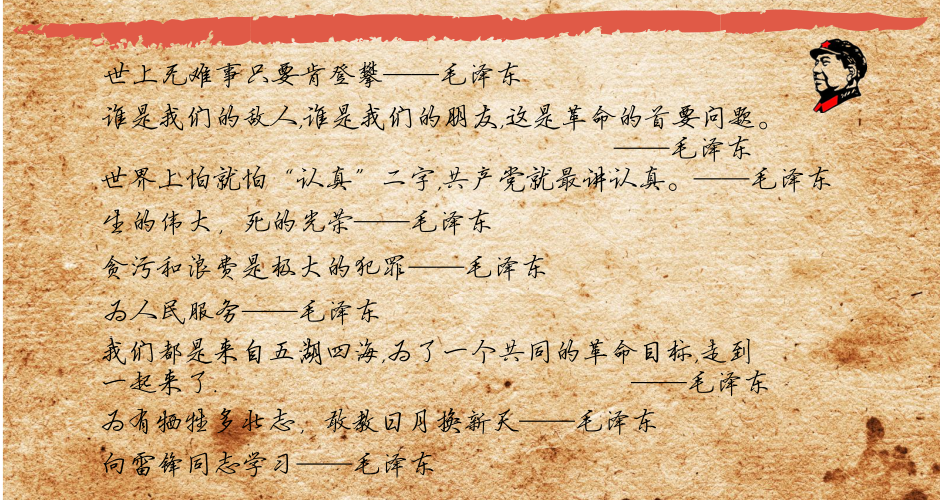 世上无难事只要肯登攀——毛泽东
谁是我们的敌人,谁是我们的朋友,这是革命的首要问题。
——毛泽东
世界上怕就怕“认真”二字,共产党就最讲认真。——毛泽东
生的伟大，死的光荣——毛泽东
贪污和浪费是极大的犯罪——毛泽东
为人民服务——毛泽东
我们都是来自五湖四海,为了一个共同的革命目标,走到
一起来了. ——毛泽东
为有牺牲多壮志，敢教日月换新天——毛泽东
向雷锋同志学习——毛泽东